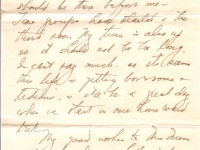 should be there before me -
Two groups have started & the
third about. My turn is along up
so it should not be too long.
I can't say much, as it seems
this life is getting burdensome &
tedious, & it'll be a great day
when we start on our homeward
trek.
My good wishes to Mrs